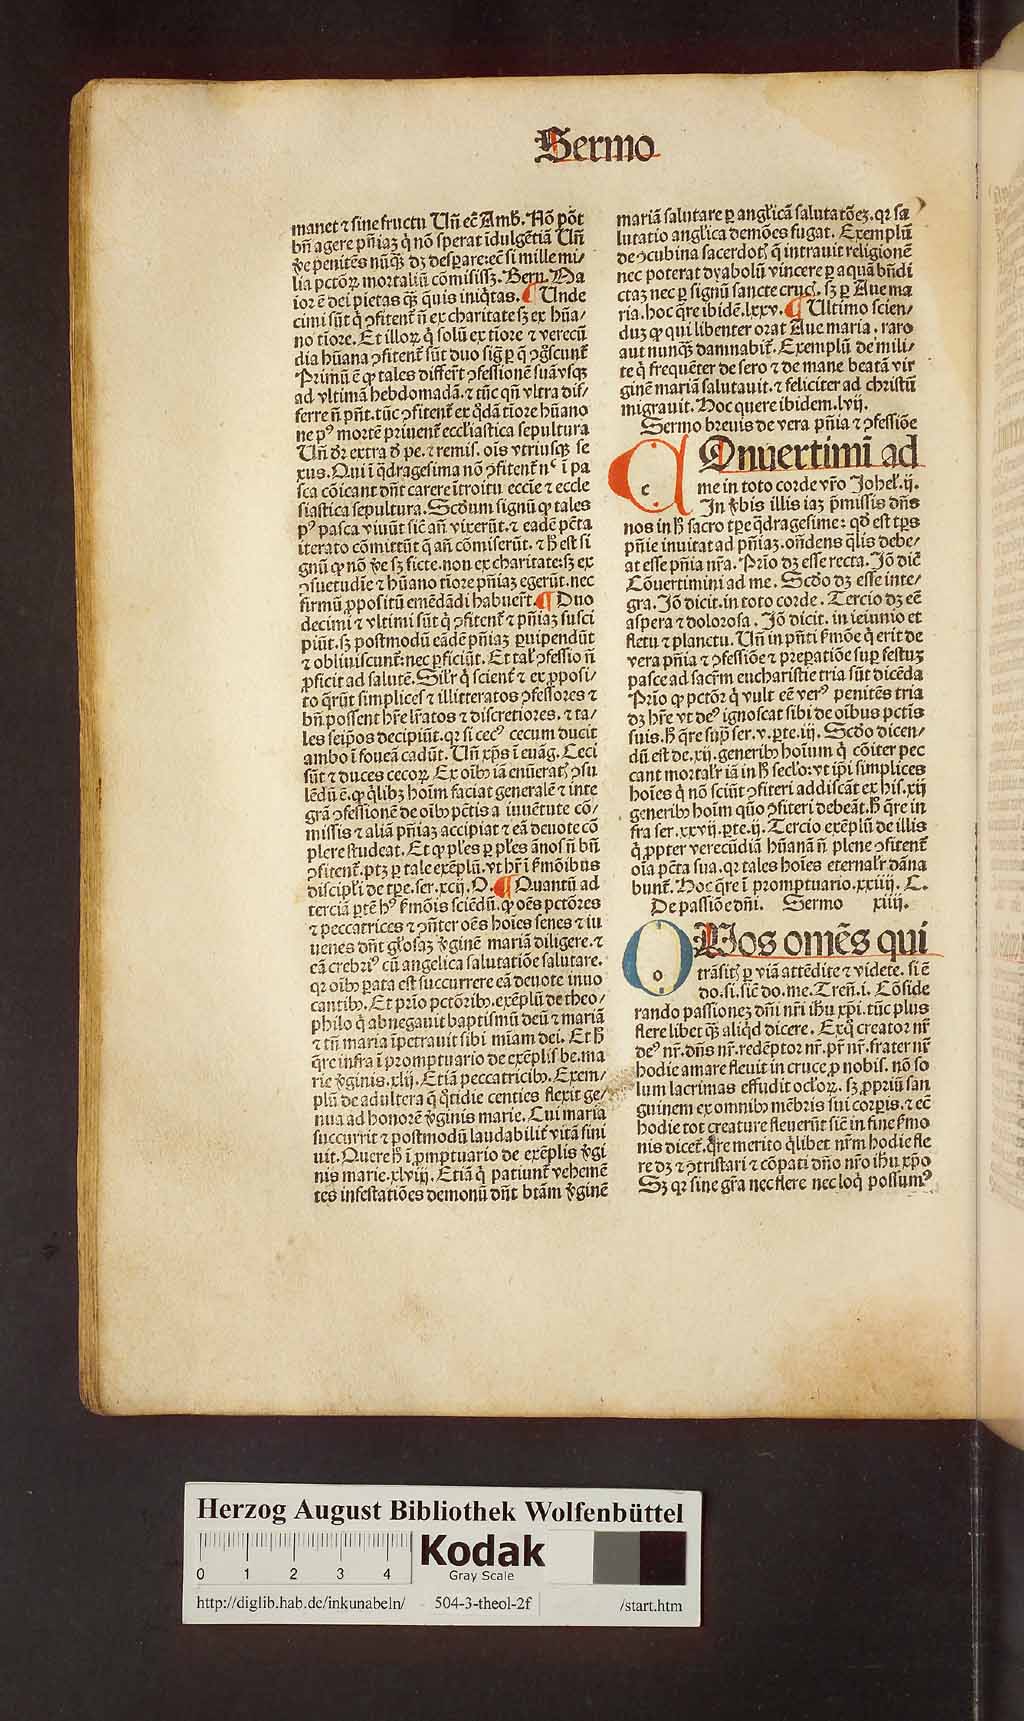 Sermo
manet ⁊ sine fructu Uñ ec̄ Amb̃. Nō pōt
bñ agere pñiaꝫ q̇ nō sperat īdulgētiā Uñ
v̾e penitēs nūq̄ꝫ dꝫ desꝑare: ec̄ si mille mi⸗
lia pctōꝝ mortaliū cōmisissꝫ. Bern. Ma
ior ē dei pietas q̄ꝫ q̄uis iniq̇tas. ¶ Unde
cimi sūt q̇ ↄfitenť ñ ex charitate sꝫ ex hūa⸗
no tiore. Et illoꝝ q̇ solū ex tiore ⁊ verecū
dia hūana ↄfitenť sūt duo sig̃ ꝑ q̄ ↄg̃scunť
Primū ē ꝙ tales differť ↄfessionē suā vsqꝫ
ad vltimā hebdomadā. ⁊ tūc qñ vltra dif⸗
ferre ñ pñt. tūc ↄfitenť ex q̄dā tiore hūano
ne pꝰ mortē priuenť eccl̃iastica sepultura
Uñ dr̃ extra d̾ pe. ⁊ remis. oīs vtriusqꝫ se
xus. Qui ī q̄dragesima nō ↄfitenť nᶜ ī pa
sca cōicant dñt carere ītroitu eccīe ⁊ eccle
siastica sepultura. Scd̾um signū ꝙ tales
pꝰ pasca viuūt sic̄ añ vixerūt. ⁊ eadē pc̄ta
iterato cōmittūt q̄ añ cōmiserūt. ⁊ h̾ est si
gnū ꝙ nō v̾e sꝫ ficte. non ex charitate: sꝫ ex
ↄsuetudīe ⁊ hūano tiore pñiaꝫ egerūt. nec
firmū ꝓpositū emēdādi habuerť. ¶ Duo
decimi ⁊ vltimi sūt q̇ ↄfitenť ⁊ pñiaꝫ susci
piūt. sꝫ postmodū eādē pñiaꝫ ꝑuipendūt
⁊ obliuiscunť: nec ꝑficiūt. Et tal̃ ↄfessio ñ
ꝓficit ad salutē. Sil̃r q̇ scienť ⁊ ex ꝓposi⸗
to q̄rūt simplices ⁊ illitteratos ↄfessores ⁊
bñ possent hr̃e lr̃atos ⁊ discretiores. ⁊ ta⸗
les seip̄os decipiūt. qꝛ si cecꝰ cecum ducit
ambo ī foueā cadūt. Uñ xp̄s ī euāg. Ceci
sūt ⁊ duces cecoꝝ. Ex oībꝫ iā enūerať ↄsu
lēdū ē. ꝙ q̇libꝫ hoīm faciat generalē ⁊ inte
grā ↄfessionē de oībꝫ pc̄tis a iuuētute cō⸗
missis ⁊ aliā pñiaꝫ accipiat ⁊ eā deuote cō
plere studeat. Et ꝙ pl̃es ꝑ pl̃es ānos ñ bñ
ↄfitenť. ptꝫ ꝑ tale exēplū. vt hr̃ ī ẜmōibus
discipl̃i de tp̄e. ser. xcij. O. ¶ Quantū ad
terciā ꝑtē hꝰ ẜmōis sciēdū. ꝙ oēs pctōres
⁊ peccatrices ⁊ ↄñter oēs hoīes senes ⁊ iu
uenes dñt gl̃osaꝫ v̾ginē mariā diligere. ⁊
eā crebriꝰ cū angelica salutatiōe salutare.
qꝛ oībꝫ ꝑata est succurrere eā deuote inuo
cantibꝫ. Et prīo pctōribꝫ. exēplū de theo⸗
philo q̇ abnegauit baptismū deū ⁊ mariā
⁊ tñ maria īpetrauit sibi mīam dei. Et h̾
q̄re infra ī promptuario de exēplis be. ma
rie v̾ginis. xlij. Etiā peccatricibꝫ. Exem⸗
plū de adultera q̄ q̇tidie centies flexit ge⸗
nua ad honorē v̾ginis marie. Cui maria
succurrit ⁊ postmodū laudabiliť vitā fini
uit. Quere h̾ ī ꝓmptuario de exēplis v̾gi
nis marie. xlviij. Etiā q̇ patiunť vehemē
tes infestatiōes demonū dñt btām v̾ginē
mariā salutare ꝑ angl̃icā salutatōeꝫ. qꝛ sa
lutatio angl̃ica demōes fugat. Exemplū
de ↄcubina sacerdoť q̄ intrauit religionē
nec poterat dyabolū vincere ꝑ aquā bñdi
ctaꝫ nec ꝑ signū sancte cruč. sꝫ ꝑ Aue ma
ria. hoc q̄re ibidē. lxxv. ¶ Ultimo scien⸗
duꝫ ꝙ qui libenter orat Aue maria. raro
aut nunq̄ꝫ damnabiť. Exemplū de mili⸗
te q̇ frequēter de sero ⁊ de mane beatā vir
ginē mariā salutauit. ⁊ feliciter ad christū
migrauit. Hoc quere ibidem. lvij.
Sermo breuis de vera pñia ⁊ ↄfessiōe
COnuertimī ad
me in toto corde vr̃o Johel̃. ij.
In v̾bis illis iaꝫ p̄missis dñs
nos in h̾ sacro tp̄e q̄dragesime: qd̾ est tp̄s
pñie inuitat ad pñiaꝫ. oñdens q̄lis debe⸗
at esse pñia nr̃a. Prīo dꝫ esse recta. Jō dič
Cōuertimini ad me. Scd̾o dꝫ esse inte⸗
gra. Jō dicit. in toto corde. Tercio dꝫ eē
aspera ⁊ dolorosa. Jō dicit. in ieiunio et
fletu ⁊ planctu. Uñ in pñti ẜmōe q̇ erit de
vera pñia ⁊ ↄfessiōe ⁊ preparatiōe suꝑ festuꝫ
pasce ad sacr̃m eucharistie tria sūt dicēda
Prīo ꝙ pctōr q̇ vult eē verꝰ penitēs tria
dꝫ hr̃e vt deꝰ ignoscat sibi de oībus pctīs
suis. h̾ q̄re sup̄ ser. v. ꝑte. iij. Scd̾o dicen⸗
dū est de. xij. generibꝫ hoīum q̇ cōiter pec
cant mortalr̃ iā in h̾ seclo: vt ip̄i simplices
hoīes q̇ nō sciūt ↄfiteri addiscāt ex his. xij
generibꝫ hoīm quō ↄfiteri debeāt. h̾ q̄re in
fra ser. xxvij. ꝑte. ij. Tercio exēplū de illis
q̇ ꝓpter verecūdiā hūanā ñ plene ↄfitenť
oīa pc̄ta sua. qꝛ tales hoīes eternalr̃ dāna
bunť. Hoc q̄re ī promptuario. xxiiij. C.
De passiōe dñi. Sermo xiiij.
O Vos omēs qui
trāsiť ꝑ viā attēdite ⁊ videte. si ē
do. si. sic̄ do. me. Treñ. i. Cōside
rando passioneꝫ dñi nr̃i ih̃u xp̄i. tūc plus
flere libet q̄ꝫ aliq̇d dicere. Exq̇ creator nr̃
deꝰ nr̃. dñs nr̃. redēptor nr̃. pr̃ nr̃. frater nr̃
hodie amare fleuit in cruce ꝓ nobis. nō so
lum lacrimas effudit ocl̃oꝝ. sꝫ ꝓpriū san
guinem ex omnibꝫ mēbris sui corꝑis. ⁊ ec̄
hodie tot creature fleuerūt sic̄ in fine ẜmo
nis diceť. q̄re merito q̇libet nr̃m hodie fle
re dꝫ ⁊ ↄtristari ⁊ cōpati dño nr̃o ih̃u xp̄o
Sꝫ qꝛ sine gr̃a nec flere nec loq̇ possumꝰ
Herzog August Bibliothek Wolfenbüttel
0 1 2 3 4
Kodak
Gray Scale
http://diglib.hab.de/inkunabeln/ - 504-3-theol-2f /start.htm